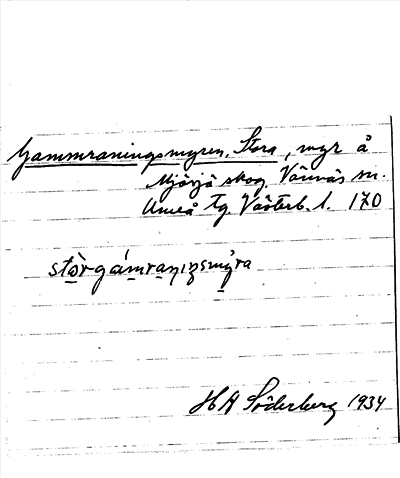 Gammraningsmyren, Stora, myr å
Mjösjö skog, Vännäs sn.
Umeå tg. Västerb. l. 170
stòrgámraṇıṇsmy̆ra
H A Söderberg 1934